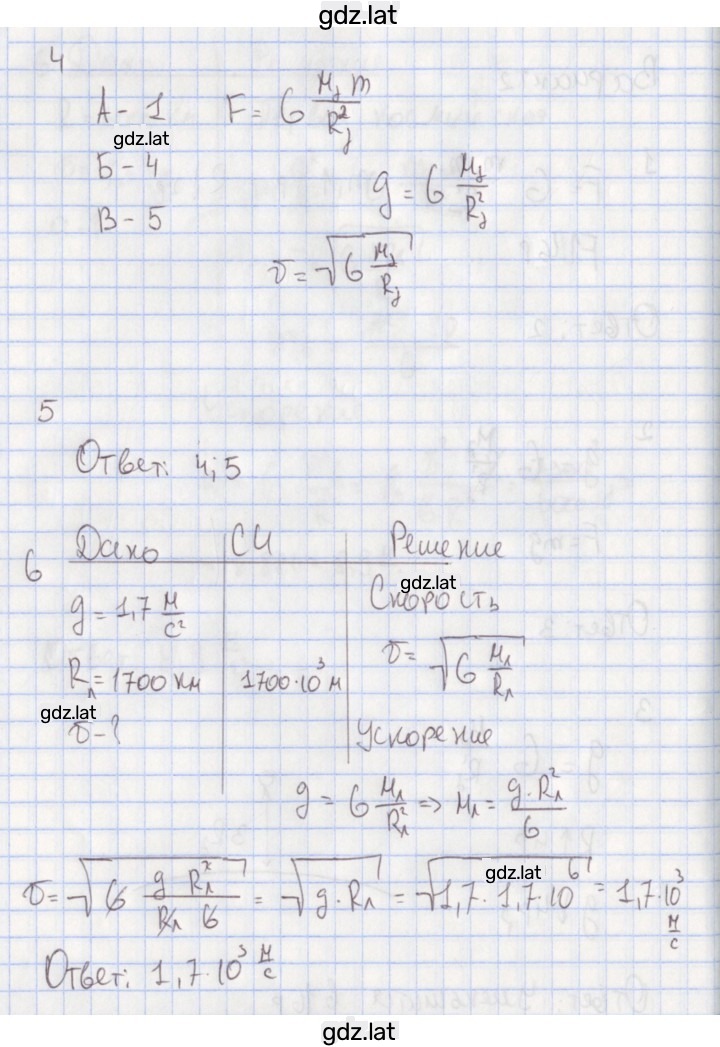 gdz.lat
4
А - 1 F = G Mз m / Rз²
gdz.lat
Б - 4
g = G Mз / Rз²
В - 5
v = √(G Mз / Rз)
5
Ответ: 4; 5
6 Дано СИ Решение
gdz.lat
g = 1,7 м/с² Скорость
v = √(G Mл / Rл)
Rл = 1700 км 1700·10³ м
gdz.lat
v - ? Ускорение
g = G Mл / Rл² => Mл = g·Rл² / G
gdz.lat
v = √(G g Rл² / Rл G) = √(g·Rл) = √(1,7·1,7·10⁶) = 1,7·10³ м/с
Ответ: 1,7·10³ м/с
gdz.lat